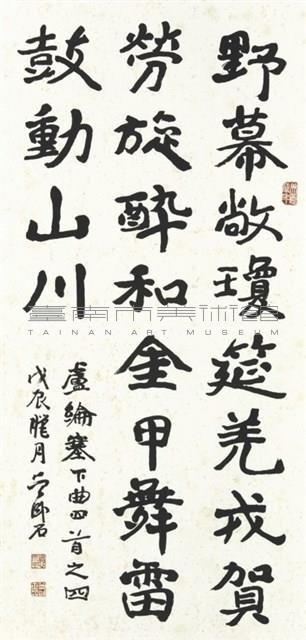 野幕敞瓊筵羌戎賀
勞旋醉和金甲舞雷
鼓動山川
盧綸塞下曲四首之四
戊辰臘月
臺南市美術館
TAINAN ART MUSEUM